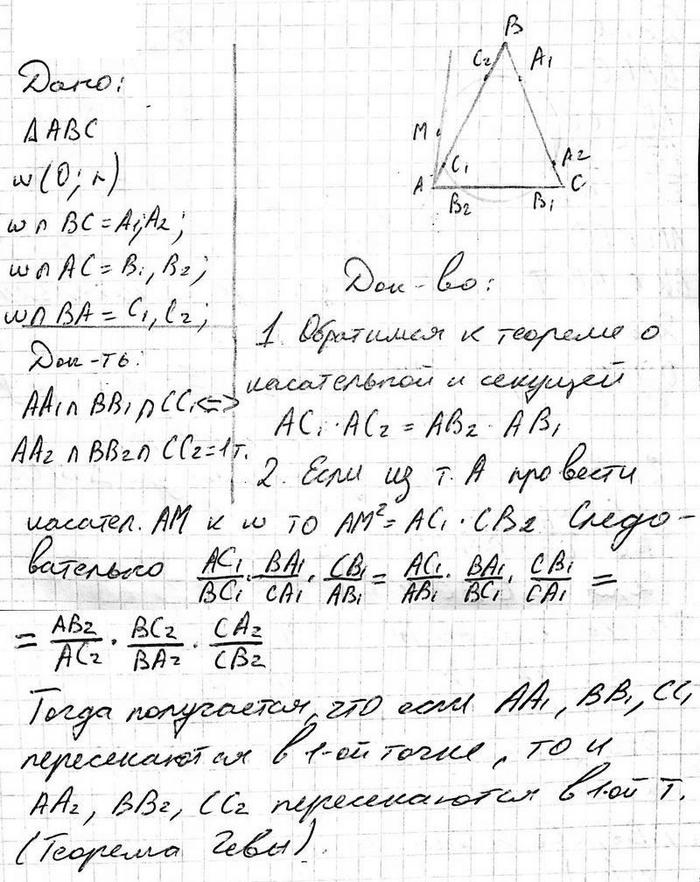 Дано:
ΔABC
w(O; r)
w∩BC=A₁,A₂;
w∩AC=B₁,B₂;
w∩BA=C₁,C₂;
Док-ть:
AA₁∩BB₁∩CC₁<=>
AA₂∩BB₂∩CC₂=1т.
B
C₂
A₁
M
C₁
A₂
A
C
B₂
B₁
Док-во:
1. Обратимся к теореме о
касательной и секущей
AC₁·AC₂=AB₂·AB₁
2. Если из т. A провести
касател. AM к w то AM²=AC₁·CB₂ Следо-
вательно AC₁/BC₁·BA₁/CA₁·CB₁/AB₁=AC₁/AB₁·BA₁/BC₁·CB₁/CA₁=
=AB₂/AC₂·BC₂/BA₂·CA₂/CB₂
Тогда получается, что если AA₁, BB₁, CC₁
пересекаются в 1-ой точке, то и
AA₂, BB₂, CC₂ пересекаются в 1-ой т.
(Теорема Чевы)